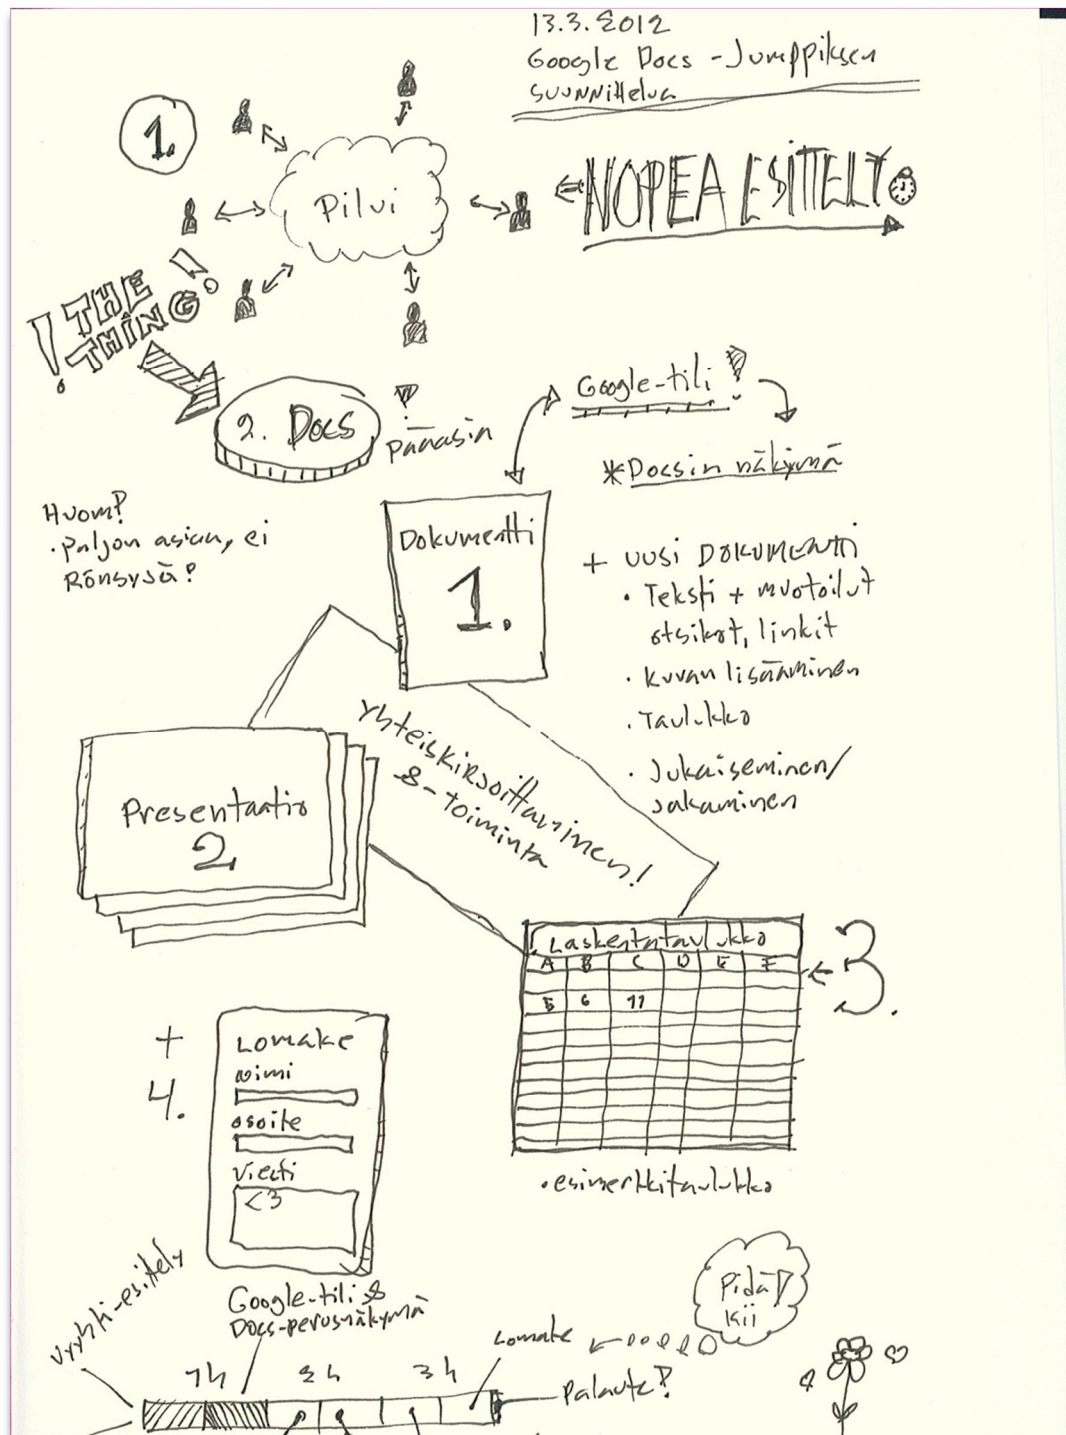 13.3.2012
Google Docs - Jumppiksen
suunnittelua
1.
Pilvi
NOPEA ESITTELY
! THE
THING!
2. Docs
! Pääasia
Google-tili!
* Docsin näkymä
Huom!
• Paljon asiaa, ei
Rönsysä!
Dokumentti
1.
+ uusi DOKUMENTTI
• Teksti + muotoilut
otsikot, linkit
• Kuvan lisääminen
• Taulukko
• Jukaiseminen/
Jakaminen
Yhteiskirjoittaminen!
& -toiminta
Presentaatio
2
Laskentataulukko
A B C D E F
5 6 11
3.
• esimerkkitaulukko
+
4.
Lomake
nimi
osoite
viesti
<3
Pidä!
kii
Google-tili &
Docs-perusnäkymä
Lomake
1h 2h 3h
Palaute!